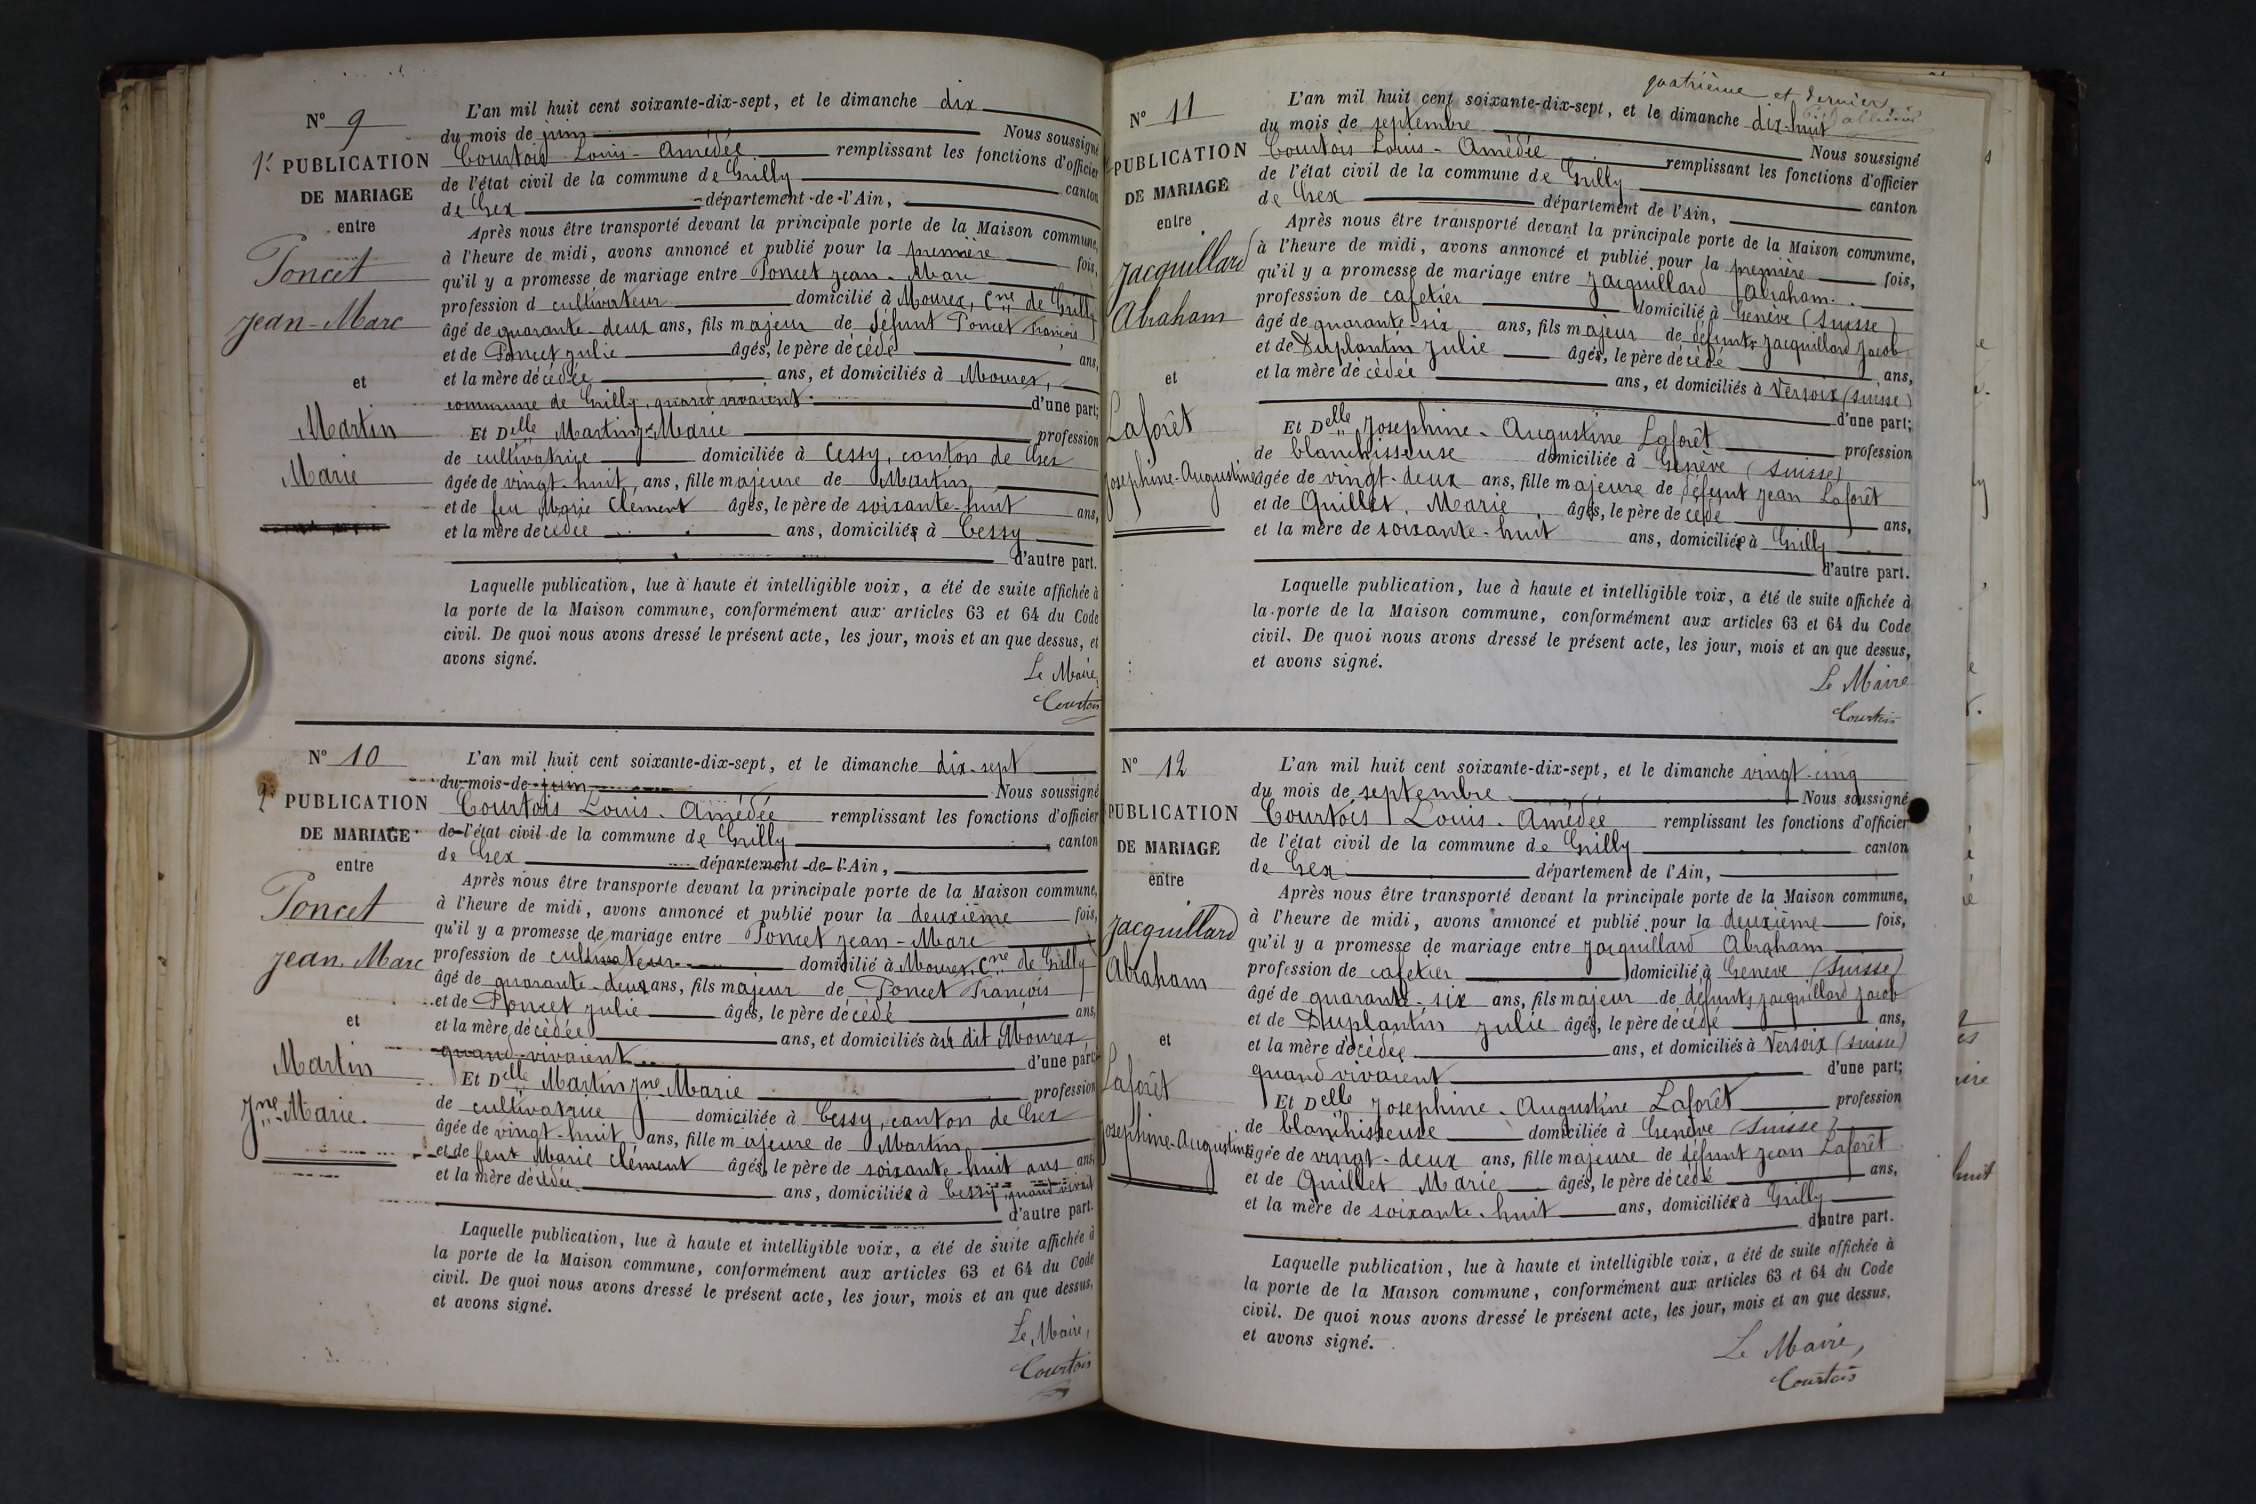 N° 9
1re PUBLICATION
DE MARIAGE
entre
Poncet
Jean-Marc
et
Martin
Marie
L'an mil huit cent soixante-dix-sept, et le dimanche dix
du mois de juin Nous soussigné
Courtois Louis-Amédée remplissant les fonctions d'officier
de l'état civil de la commune de Grilly canton
de Gex département de l'Ain,
Après nous être transporté devant la principale porte de la Maison commune,
à l'heure de midi, avons annoncé et publié pour la première fois,
qu'il y a promesse de mariage entre Poncet Jean-Marc
profession d cultivateur domicilié à Mourex, Cne de Grilly
âgé de quarante-deux ans, fils majeur de défunt Poncet François
et de Poncet Julie âgés, le père décédé ans,
et la mère décédée ans, et domiciliés à Mourex,
commune de Grilly, quand vivaient d'une part;
Et Delle Martin Jne Marie profession
de cultivatrice domiciliée à Cessy, canton de Gex
âgée de vingt-huit ans, fille majeure de Martin
et de feu Marie Clément âgés, le père de soixante-huit ans,
et la mère décédée ans, domiciliés à Cessy
d'autre part.
Laquelle publication, lue à haute et intelligible voix, a été de suite affichée à
la porte de la Maison commune, conformément aux articles 63 et 64 du Code
civil. De quoi nous avons dressé le présent acte, les jour, mois et an que dessus, et
avons signé.
Le Maire,
Courtois
N° 10
2e PUBLICATION
DE MARIAGE
entre
Poncet
Jean. Marc
et
Martin
Jne Marie.
L'an mil huit cent soixante-dix-sept, et le dimanche dix-sept
du mois de juin Nous soussigné
Courtois Louis-Amédée remplissant les fonctions d'officier
de l'état civil de la commune de Grilly canton
de Gex département de l'Ain,
Après nous être transporté devant la principale porte de la Maison commune,
à l'heure de midi, avons annoncé et publié pour la deuxième fois,
qu'il y a promesse de mariage entre Poncet Jean-Marc
profession de cultivateur domicilié à Mourex, Cne de Grilly
âgé de quarante-deux ans, fils majeur de Poncet François
et de Poncet Julie âgés, le père décédé ans,
et la mère décédée ans, et domiciliés à dit Mourex
quand vivaient d'une part
Et Delle Martin Jne Marie profession
de cultivatrice domiciliée à Cessy, canton de Gex
âgée de vingt-huit ans, fille majeure de Martin
et de feut Marie Clément âgés, le père de soixante-huit ans ans,
et la mère décédée ans, domiciliés à Cessy, quand vivait
d'autre part.
Laquelle publication, lue à haute et intelligible voix, a été de suite affichée à
la porte de la Maison commune, conformément aux articles 63 et 64 du Code
civil. De quoi nous avons dressé le présent acte, les jour, mois et an que dessus,
et avons signé.
Le Maire,
Courtois
quatrième et dernier,
N° 11
PUBLICATION
DE MARIAGE
entre
Jacquillard
Abraham
et
Laforêt
Josephine-Augustine
L'an mil huit cent soixante-dix-sept, et le dimanche dix-huit
du mois de septembre Nous soussigné
Courtois Louis-Amédée remplissant les fonctions d'officier
de l'état civil de la commune de Grilly canton
de Gex département de l'Ain,
Après nous être transporté devant la principale porte de la Maison commune,
à l'heure de midi, avons annoncé et publié pour la première fois,
qu'il y a promesse de mariage entre Jacquillard Abraham
profession de cafetier domicilié à Genève (Suisse)
âgé de quarante-six ans, fils majeur de défunts Jacquillard Jacob
et de Duplantin Julie âgés, le père décédé ans,
et la mère décédée ans, et domiciliés à Versoix (Suisse)
d'une part;
Et Delle Josephine-Augustine Laforêt profession
de blanchisseuse domiciliée à Genève (Suisse)
âgée de vingt-deux ans, fille majeure de défunt Jean Laforêt
et de Quillet, Marie âgés, le père décédé ans,
et la mère de soixante-huit ans, domiciliés à Grilly
d'autre part.
Laquelle publication, lue à haute et intelligible voix, a été de suite affichée à
la porte de la Maison commune, conformément aux articles 63 et 64 du Code
civil. De quoi nous avons dressé le présent acte, les jour, mois et an que dessus,
et avons signé.
Le Maire
Courtois
N° 12
PUBLICATION
DE MARIAGE
entre
Jacquillard
Abraham
et
Laforêt
Josephine-Augustine
L'an mil huit cent soixante-dix-sept, et le dimanche vingt-cinq
du mois de septembre Nous soussigné
Courtois Louis-Amédée remplissant les fonctions d'officier
de l'état civil de la commune de Grilly canton
de Gex département de l'Ain,
Après nous être transporté devant la principale porte de la Maison commune,
à l'heure de midi, avons annoncé et publié pour la deuxième fois,
qu'il y a promesse de mariage entre Jacquillard Abraham
profession de cafetier domicilié à Genève (Suisse)
âgé de quarante-six ans, fils majeur de défunts Jacquillard Jacob
et de Duplantin Julie âgés, le père décédé ans,
et la mère décédée ans, et domiciliés à Versoix (Suisse)
quand vivaient d'une part;
Et Delle Josephine-Augustine Laforêt profession
de blanchisseuse domiciliée à Genève (Suisse)
âgée de vingt-deux ans, fille majeure de défunt Jean Laforêt
et de Quillet Marie âgés, le père décédé ans,
et la mère de soixante-huit ans, domiciliés à Grilly
d'autre part.
Laquelle publication, lue à haute et intelligible voix, a été de suite affichée à
la porte de la Maison commune, conformément aux articles 63 et 64 du Code
civil. De quoi nous avons dressé le présent acte, les jour, mois et an que dessus,
et avons signé.
Le Maire,
Courtois